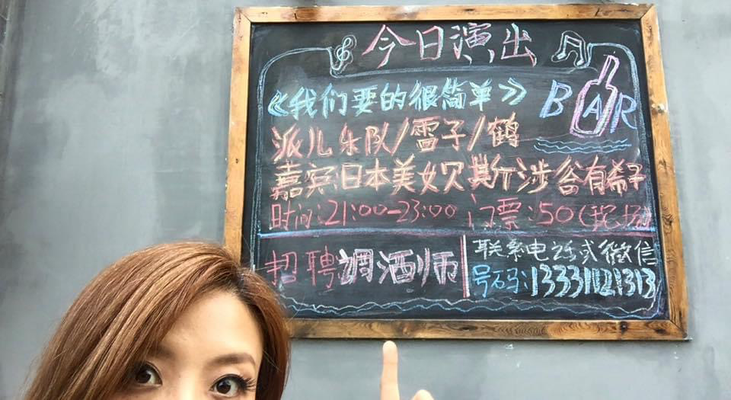 今日演出
《我们要的很简单》
BAR
派儿乐队/雷子/鹤
嘉宾:日本美女贝斯涉谷有希子
时间:21:00-23:00 门票:50(现场)
招聘调酒师
联系电话或微信
号码:13331121313